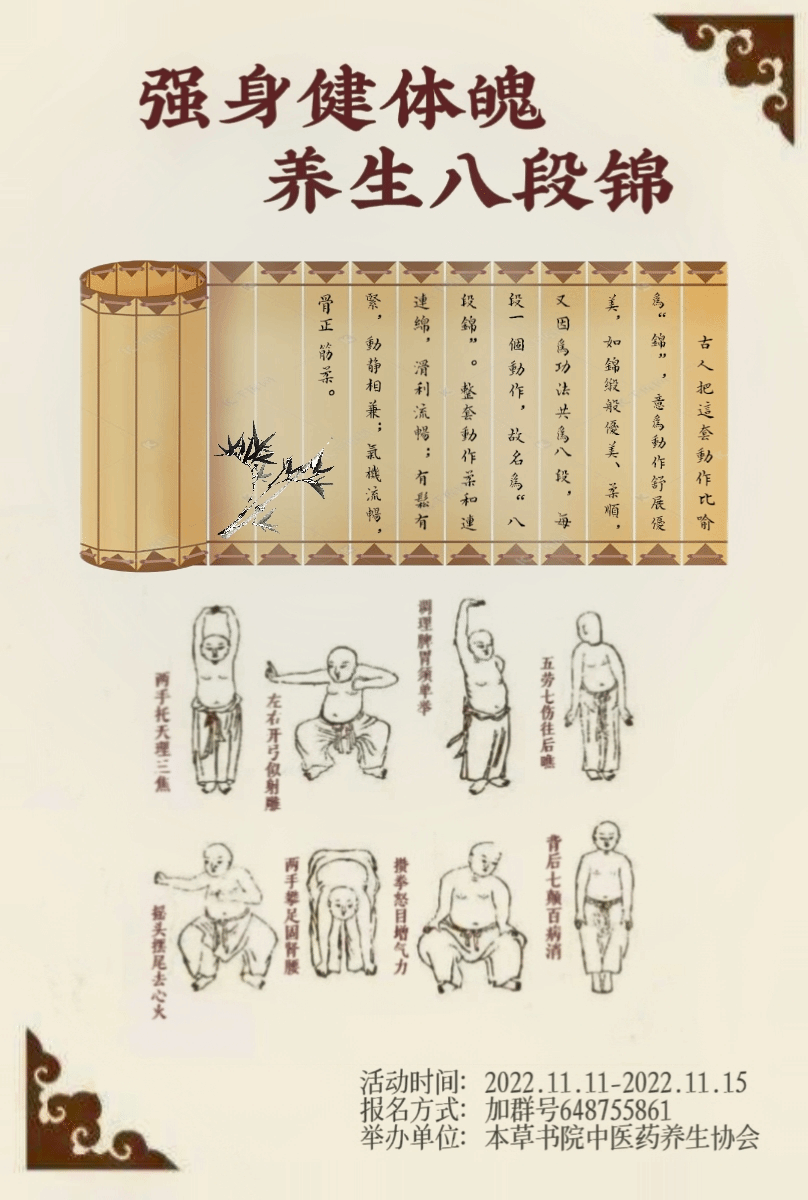 强身健体魄
养生八段锦
古人把這套動作比喻
爲“錦”，意爲動作舒展優
美，如錦緞般優美、柔順，
又因爲功法共爲八段，每
段一個動作，故名爲“八
段錦”。整套動作柔和連
連綿，滑利流暢；有鬆有
緊，動静相兼；氣機流暢，
骨正筋柔。
两手托天理三焦
左右开弓似射雕
调理脾胃须单举
五劳七伤往后瞧
摇头摆尾去心火
两手攀足固肾腰
攒拳怒目增气力
背后七颠百病消
活动时间：2022.11.11-2022.11.15
报名方式：加群号648755861
举办单位：本草书院中医药养生协会